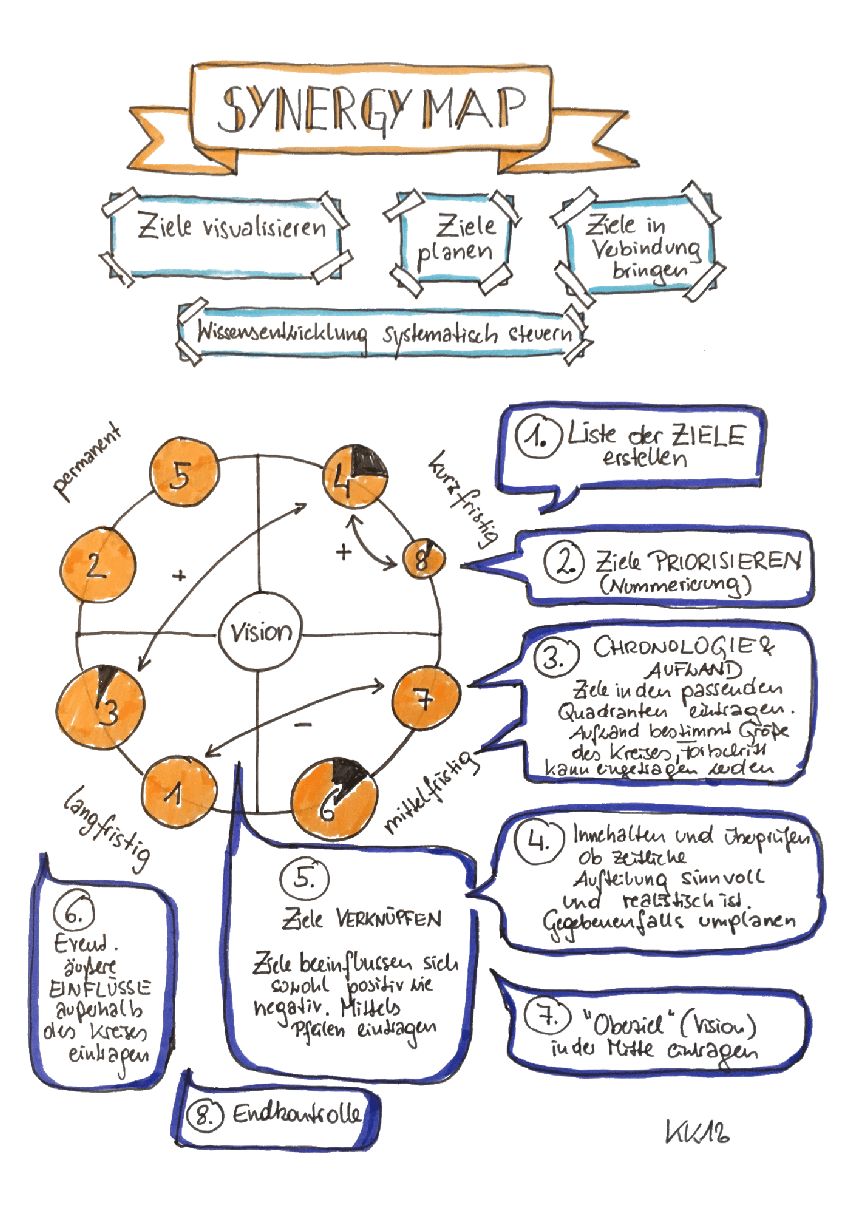 SYNERGY MAP
Ziele visualisieren
Ziele
planen
Ziele in
Verbindung
bringen
Wissensentwicklung systematisch steuern
permanent
kurzfristig
langfristig
mittelfristig
5
4
2
8
3
7
1
6
+
+
-
Vision
1. Liste der ZIELE
erstellen
2. Ziele PRIORISIEREN
(Nummerierung)
3. CHRONOLOGIE &
AUFWAND
Ziele in den passenden
Quadranten eintragen.
Aufwand bestimmt Größe
des Kreises, Fortschritt
kann eingetragen werden
4. Innehalten und überprüfen
ob zeitliche
Aufteilung sinnvoll
und realistisch ist.
Gegebenenfalls umplanen
5.
Ziele VERKNÜPFEN
Ziele beeinflussen sich
sowohl positiv wie
negativ. Mittels
Pfeilen eintragen
6.
Event.
äußere
EINFLÜSSE
außerhalb
des Kreises
eintragen
7. "Oberziel" (Vision)
in der Mitte eintragen
8. Endkontrolle